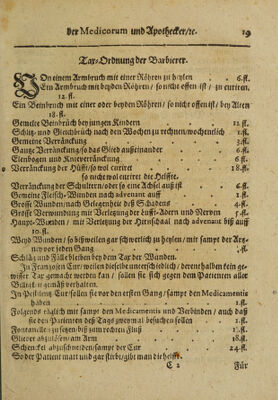 der Medicorum und Apothecker/ꝛc. 19
Tax-Ordnung der Barbierer.
VOn einem Armbruch mit einer Röhren zu heylen 6.fl.
Ein Armbruch mit beyden Röhren / so nicht offen ist / zu curiren.
12.fl.
Ein Beinbruch mit einer oder beyden Röhren/ so nicht offen ist/ bey Alten
18.fl.
Gemelte Beinbrüch bey jungen Kindern 11.fl.
Schlitz- und Gleichbrüch nach den Wochen zu rechnen/wochentlich 1.fl.
Gemeine Verränckung 3.fl.
Gantze Verränckung/so das Glied auseinander 6.fl.
Elenbogen und Knieverränckung 6.fl.
Verränckung der Hüfft/so wol curirt 18.fl.
so nicht wol curiret die Helffte.
Verränckung der Schultern/oder so eine Achsel auß ist 6.fl.
Gemeine Fleisch-Wunden nach advenant auff 1.fl.
Grosse Wunden/nach Gelegenheit deß Schadens 4.fl.
Grosse Verwundung mit Verletzung der Adern und Nerven 5.fl.
Haupt-Wunden / mit Verletzung der Hirnschaal nach advenant biß auff
10.fl.
Weyd Wunden / so bißweilen gar schwerlich zu heylen/ mit sampt der Artz-
ney vor jeden Gang 4.fl.
Schläg und Fälle bleiben bey dem Tax der Wunden.
In Frantzosen Cur/weilen dieselbe unterschiedlich / derenthalben kein ge-
wisser Tax gemacht werden kan / sollen sie sich gegen dem Patienten aller
Billigkeit gemäß verhalten.
In Pestilentz Cur/sollen sie vor den ersten Gang / sampt den Medicamentis
haben 1.fl.
Folgends täglich mit sampt den Medicamentis und Verbinden / auch daß
sie den Patienten deß Tags zweymal besuchen sollen 1.fl.
Fontanellen zu setzen/biß zum rechten Fluß 1.fl.
Glieder abzulösen/ am Arm 18.fl.
Schenckel abzuschneiden/ sampt der Cur 24.fl.
So der Patient matt und gar stirbt/gibt man die helfft.
C 2 Für